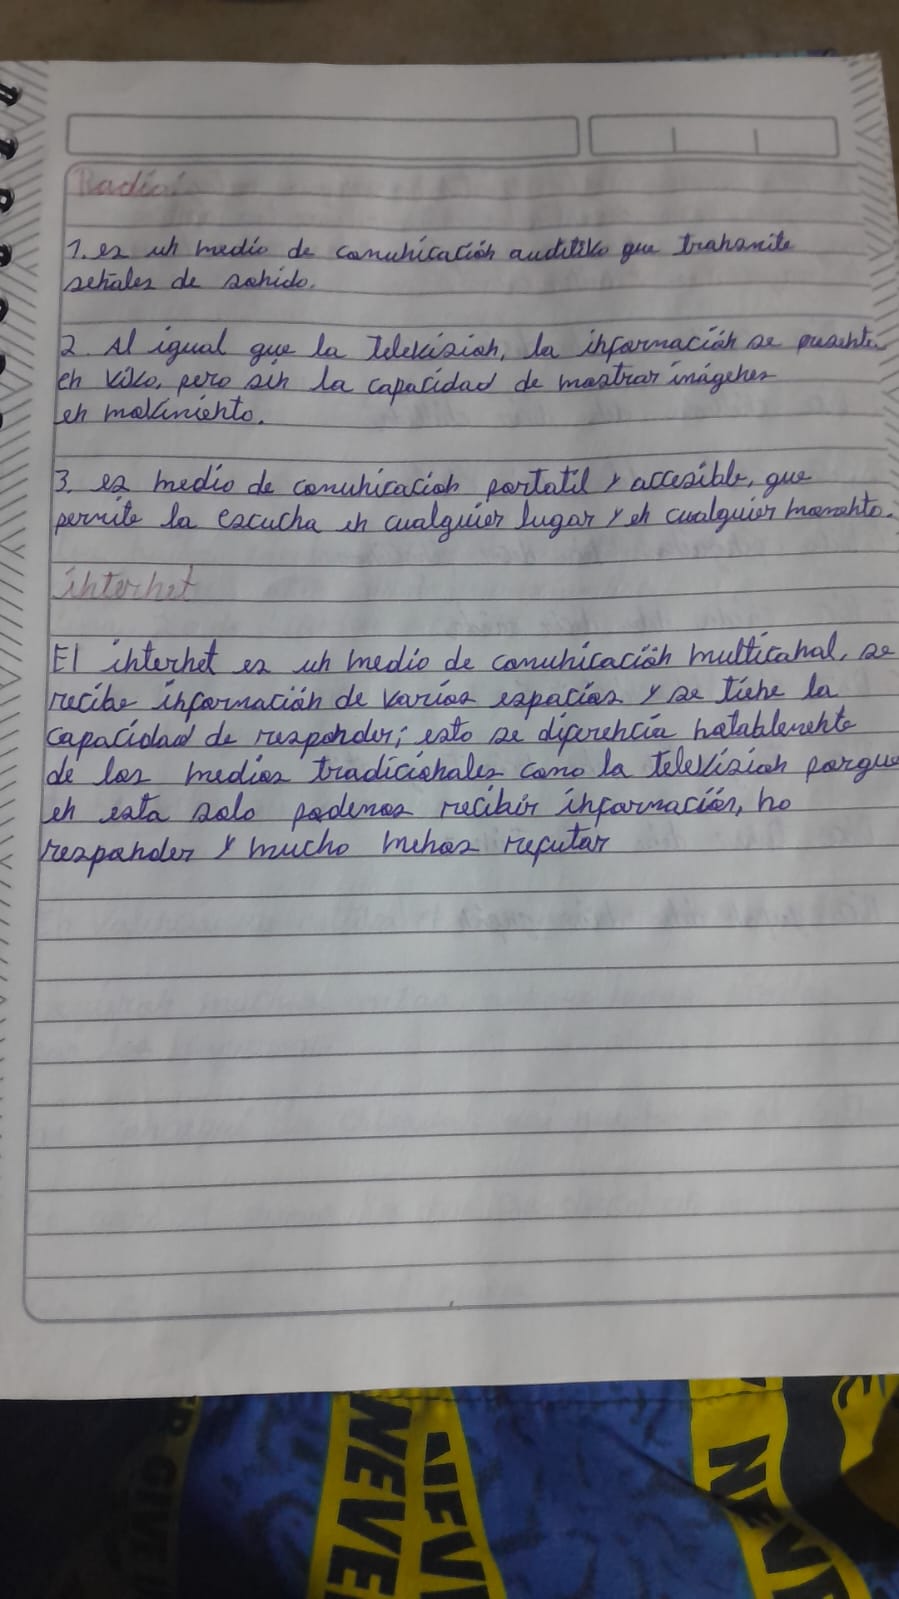 Radio:
1. es un medio de comunicación auditivo que transmite
señales de sonido.
2. Al igual que la Televisión, la información se presenta
en vivo, pero sin la capacidad de mostrar imágenes
en movimiento.
3. es medio de comunicación portatil y accesible, que
permite la escucha en cualquier lugar y en cualquier momento.
internet
El internet es un medio de comunicación multicanal, se
recibe información de varios espacios y se tiene la
capacidad de responder; esto se diferencia notablemente
de los medios tradicionales como la Televisión porque
en esta solo podemos recibir información, no
responder y mucho menos refutar
NEVER
NEVE
NEV
GIVE